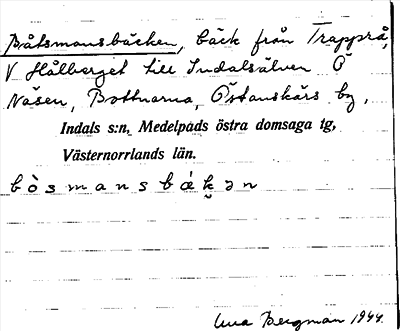 Båtsmansbäcken, bäck från Trapprå,
V Hålberget till Indalsälven Ö
Näsen, Bottnarna, Östanskärs by,
Indals s:n, Medelpads östra domsaga tg,
Västernorrlands län.
bòsmansbák̬ən
Bergman 1944.